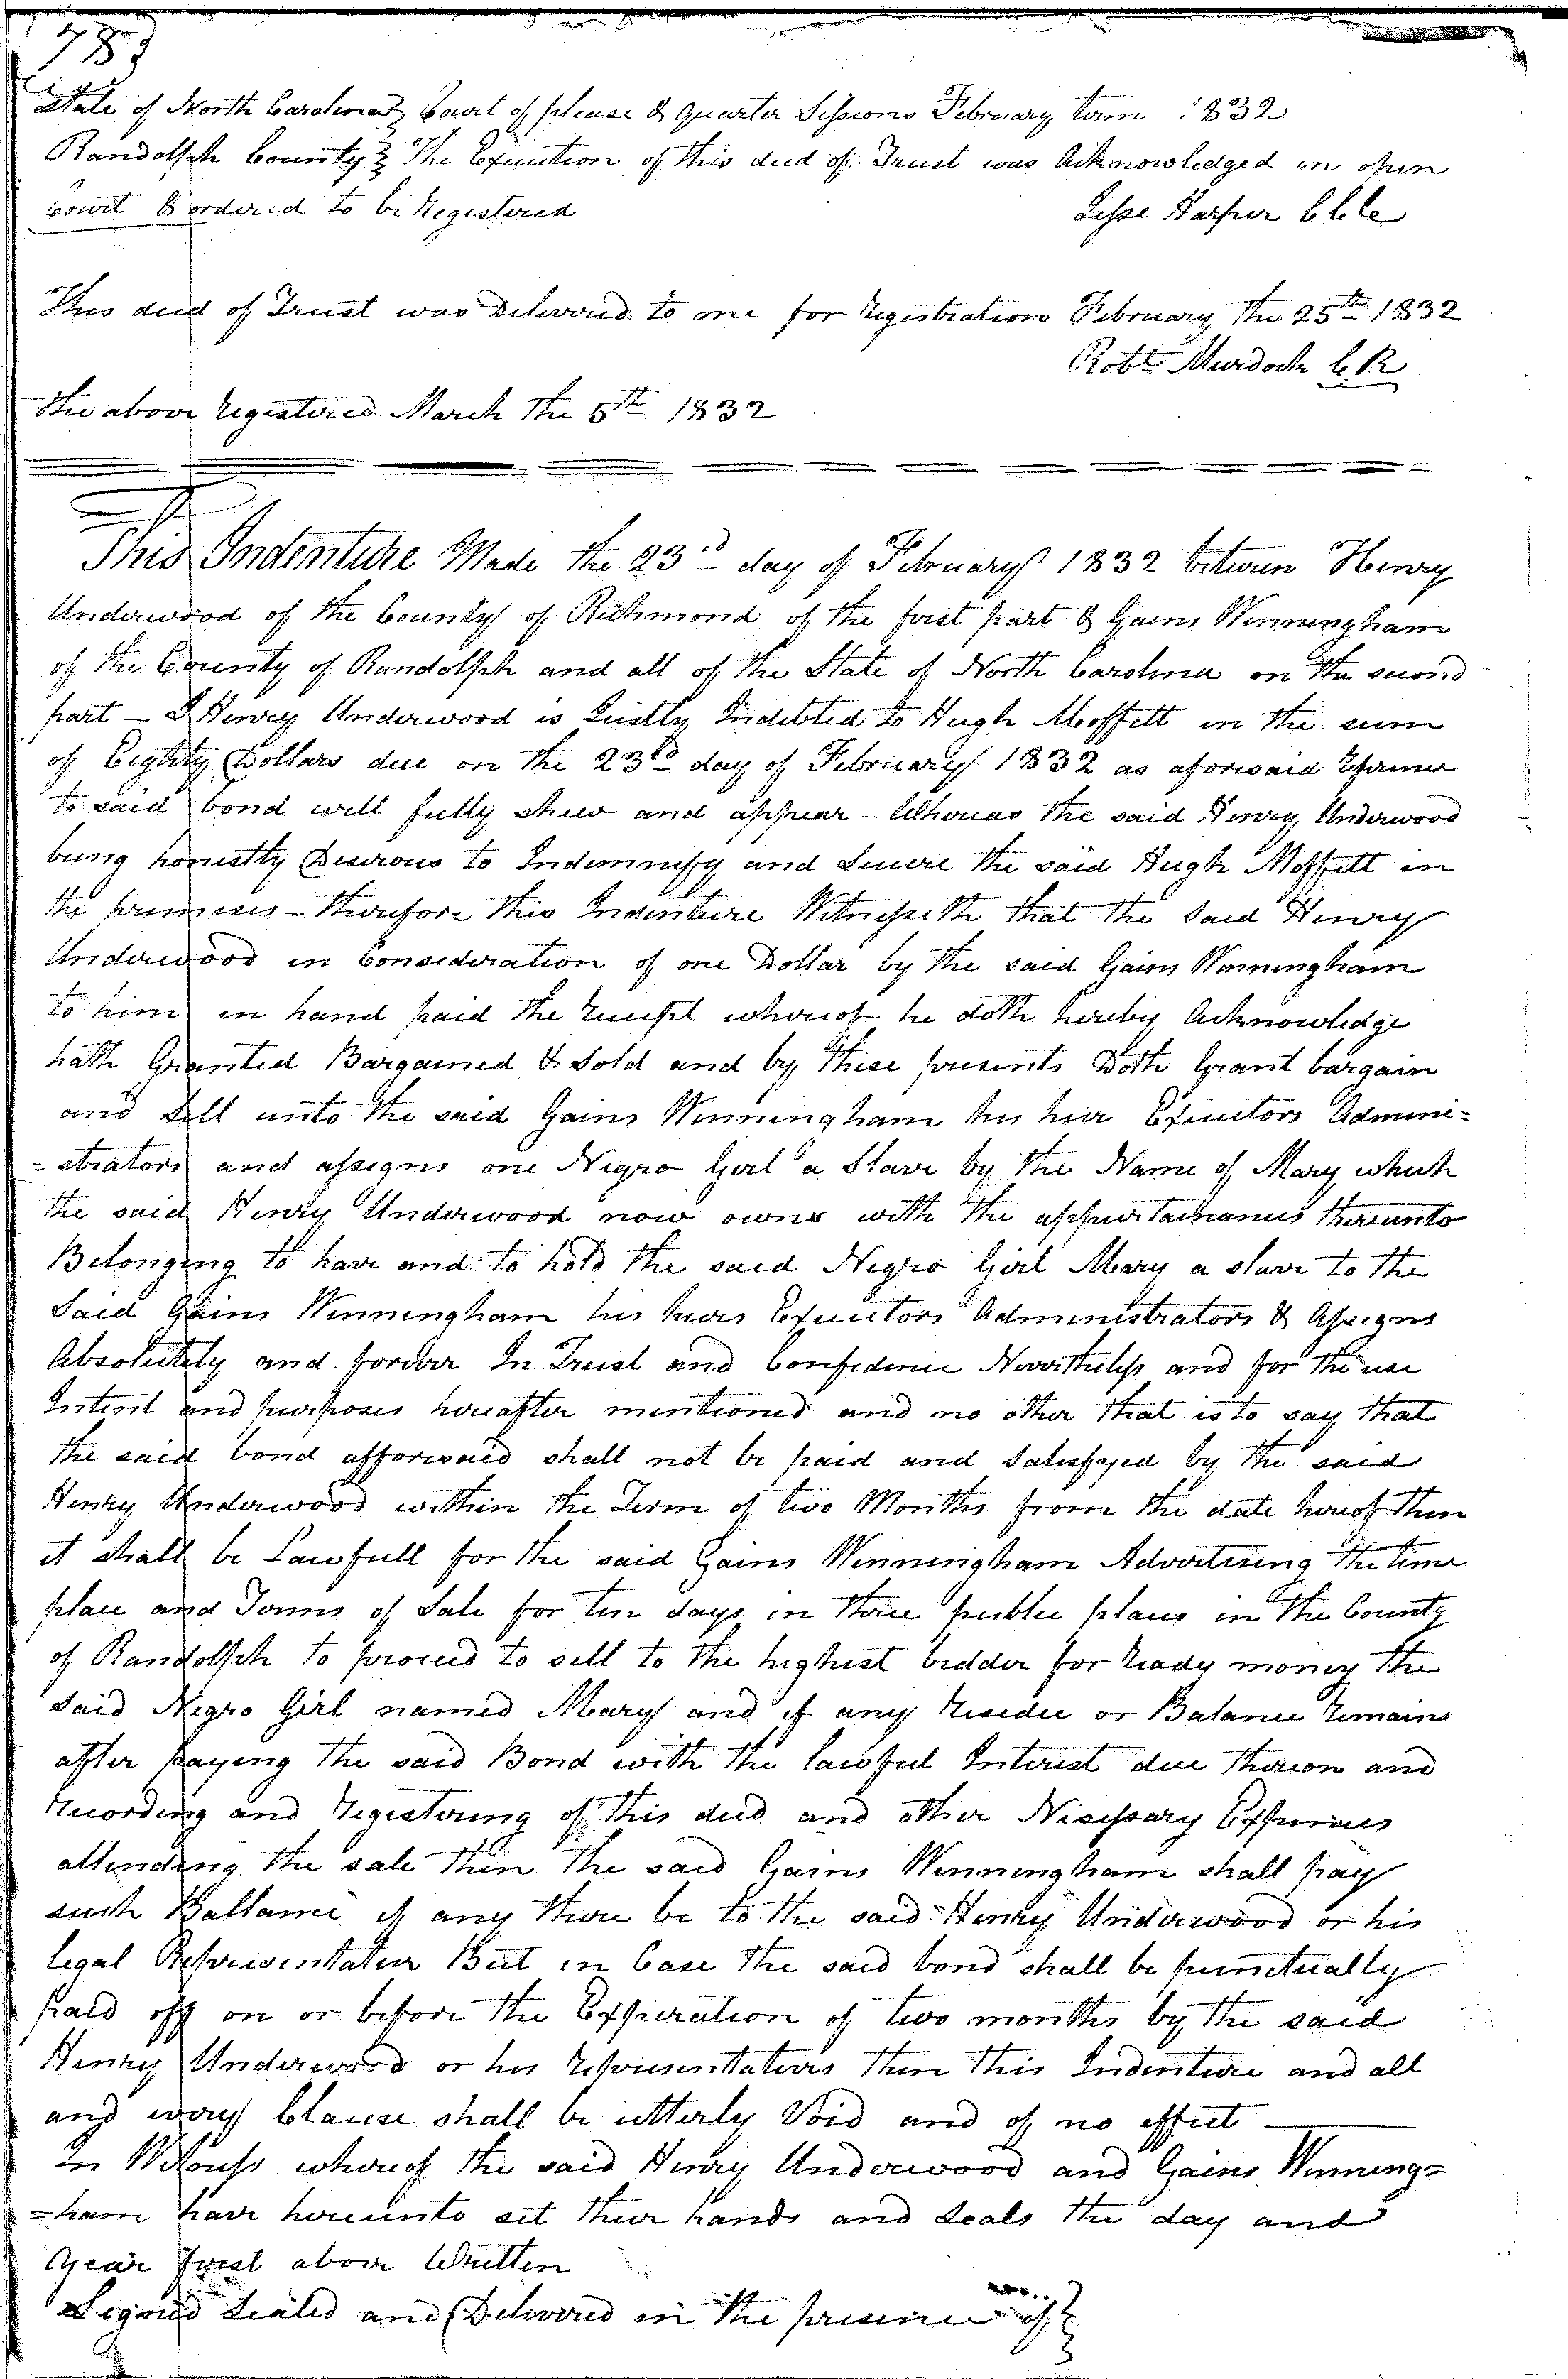 783
State of North Carolina } Court of please & quarter Sessions February term 1832
Randolph County } The Execution of this deed of Trust was Acknowledged in open
court & ordered to be Registered Jesse Harper Clk
This deed of Trust was Delivered to me for Registration February the 25th 1832
Robt Murdoch C. R
the above registered March the 5th 1832
This Indenture Made the 23rd day of February 1832 between Henry
Underwood of the County of Richmond of the first part & Gains Winningham
of the County of Randolph and all of the State of North Carolina on the second
part – I Henry Underwood is Justly Indebted to Hugh Moffitt in the sum
of Eighty Dollars due on the 23rd day of February 1832 as aforesaid
to said bond will fully shew and appear – Whereas the said Henry Underwood
being honestly Desirous to Indemnify and Secure the said Hugh Moffitt in
the premises – therefore this Indenture Witnesseth that the Said Henry
Underwood in Consideration of one Dollar by the said Gains Winningham
to him in hand paid the receipt whereof he doth hereby Acknowledge
hath Granted Bargained & Sold and by these presents Doth Grant bargain
and Sell unto the said Gains Winningham his heir Executors Admini-
-strators and assigns one Negro Girl a Slave by the Name of Mary which
the said Henry Underwood now owns with the appurtainances thereunto
Belonging to have and to hold the said Negro Girl Mary a slave to the
Said Gains Winningham his heirs Executors Administrators & Assigns
Absolutely and forever In Trust and Confidence Nevertheless and for the use
Intent and purposes hereafter mentioned and no other that is to say that
the said bond afforesaid shall not be paid and Satisfyed by the said
Henry Underwood within the Term of two Months from the date hereof then
it shall be Lawfull for the said Gains Winningham Advertising the time
place and Terms of Sale for ten days in three public places in the County
of Randolph to proceed to sell to the highest bidder for ready money the
said Negro Girl named Mary and if any residue or Balance remains
after paying the said Bond with the lawful Interest due thereon and
recording and registering of this deed and other Nisessary Expenses
attending the sale then the said Gains Winningham shall pay
such Ballance if any there be to the said Henry Underwood or his
legal Representative But in Case the said bond shall be punctually
paid off on or before the Expiration of two months by the said
Henry Underwood or his representatives then this Indenture and all
and every Clause shall be utterly Void and of no effect
In Witness whereof the said Henry Underwood and Gains Winning=
=ham have hereunto set their hands and Seals the day and
year first above Written
Signed Sealed and Delivered in the presence of }